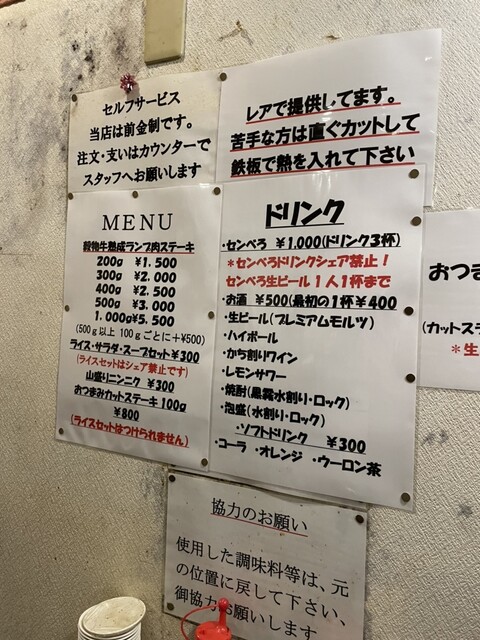 セルフサービス
当店は前金制です。
注文・支いはカウンターで
スタッフへお願いします
レアで提供してます。
苦手な方は直ぐカットして
鉄板で熱を入れて下さい
MENU
穀物牛熟成ランプ肉ステーキ
200g ¥1.500
300g ¥2.000
400g ¥2.500
500g ¥3.000
1.000g¥5.500
(500g以上 100gごとに+¥500)
ライス・サラダ・スープセット¥300
(ライスセットはシェア禁止です)
山盛りニンニク ¥300
おつまみカットステーキ100g
¥800
(ライスセットはつけられません)
ドリンク
・センべろ ¥1,000(ドリンク3杯)
*センべろドリンクシェア禁止!
センべろ生ビール1人1杯まで
・お酒 ¥500(最初の1杯¥400
・生ビール(プレミアムモルツ)
・ハイボール
・かち割りワイン
・レモンサワー
・焼酎(黒霧水割り・ロック)
・泡盛(水割り・ロック)
・ソフトドリンク ¥300
・コーラ ・オレンジ ・ウーロン茶
おつま
(カットステ
*生
協力のお願い
使用した調味料等は、元
の位置に戻して下さい、
御協力お願いします